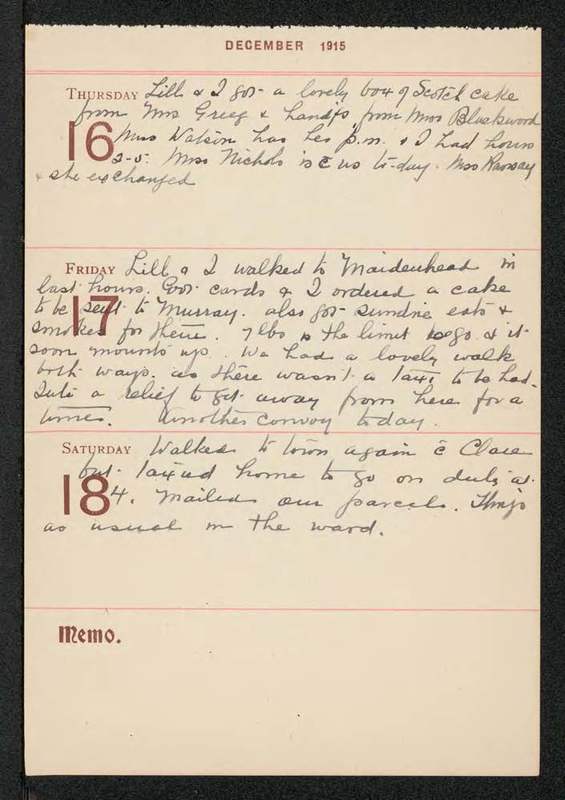 DECEMBER 1915
THURSDAY Lill & I got a lovely box of Scotch cake
from Mrs Greeg & handfs from Mrs Blackwood
16 Miss Watson has her p.m. & I had hours
2-5. Miss Nichols is c̄ us to-day. Miss Ramsay
& she exchanged
FRIDAY Lill & I walked to Maidenhead in
last hours. Got cards & I ordered a cake
17 to be sent to Murray. also got sundrie eats &
smokes for them. 7 lbs is the limit to go & it
soon mounts up. We had a lovely walk
both ways. as there wasn't a taxi to be had.
Quite a relief to get away from here for a
time. Another convoy today.
SATURDAY Walked to town again c̄ Clare
but taxied home to go on duty at
18 4. Mailed our parcels. Things
as usual in the ward.
Memo.